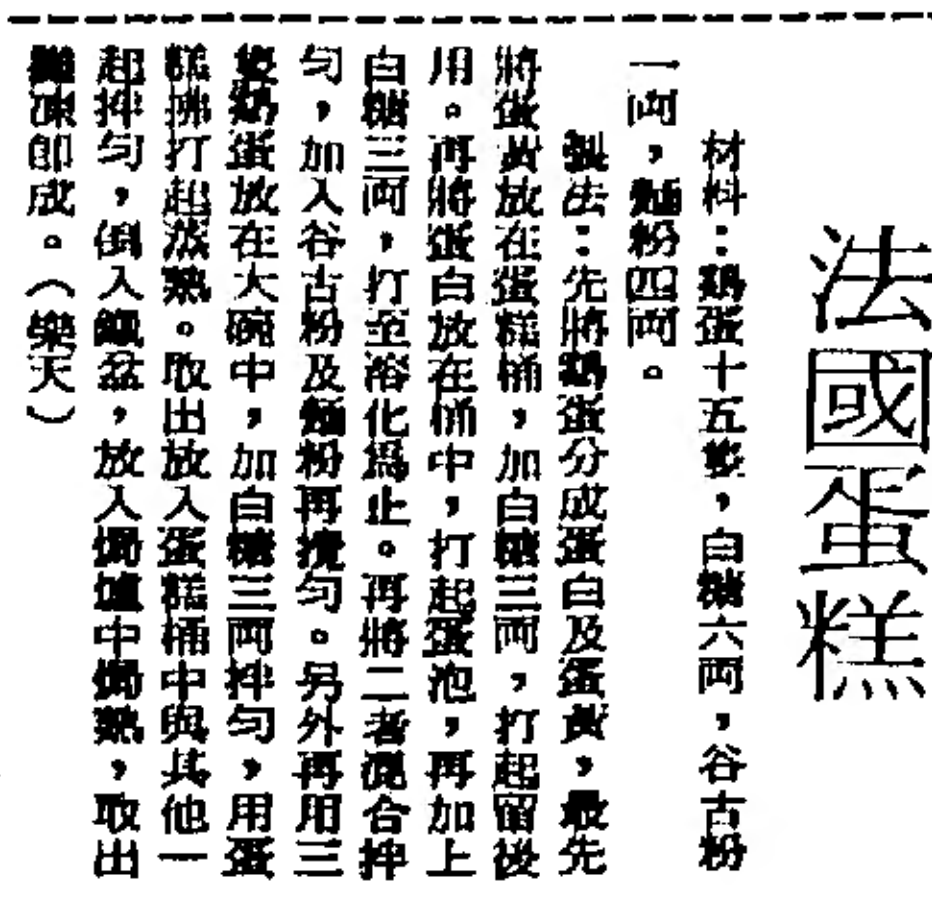 法國蛋糕
材料：鷄蛋十五隻，白糖六両，谷古粉
一両，麵粉四両。
製法：先將鷄蛋分成蛋白及蛋黃，最先
將蛋黃放在蛋糕桶，加白糖三両，打起留後
用。再將蛋白放在桶中，打起蛋泡，再加上
白糖三両，打至溶化爲止。再將二者混合拌
勻，加入谷古粉及麵粉再攪勻。另外再用三
隻鷄蛋放在大碗中，加白糖三両拌勻，用蛋
糕拂打起蒸熟。取出放入蛋糕桶中與其他一
起拌勻，倒入鐵盆，放入焗爐中焗熟，取出
攤凍即成。（樂天）